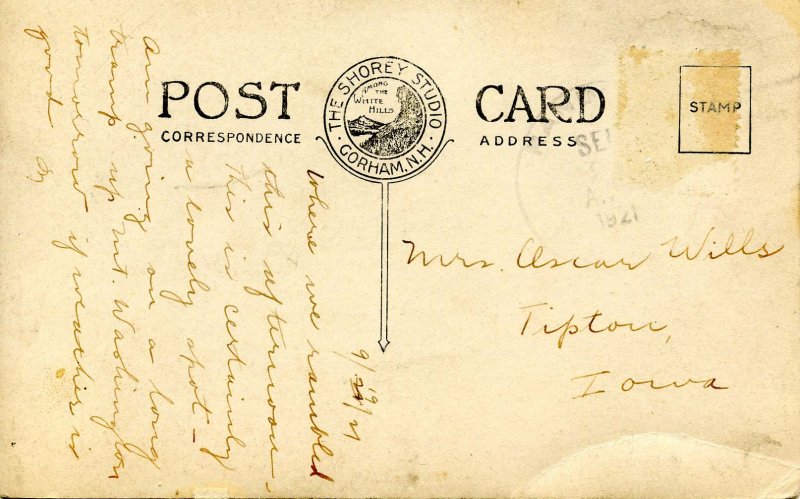 POST CARD
THE SHOREY STUDIO
AMONG
THE
WHITE
HILLS
GORHAM, N.H.
CORRESPONDENCE
ADDRESS
STAMP
1921
9/19/21
Where we rambled
this afternoon.
This is certainly
a lovely spot –
Am going on a long
tramp up Mt. Washington
tomorrow if weather is
good
Mrs. Oscar Wills
Tipton,
Iowa